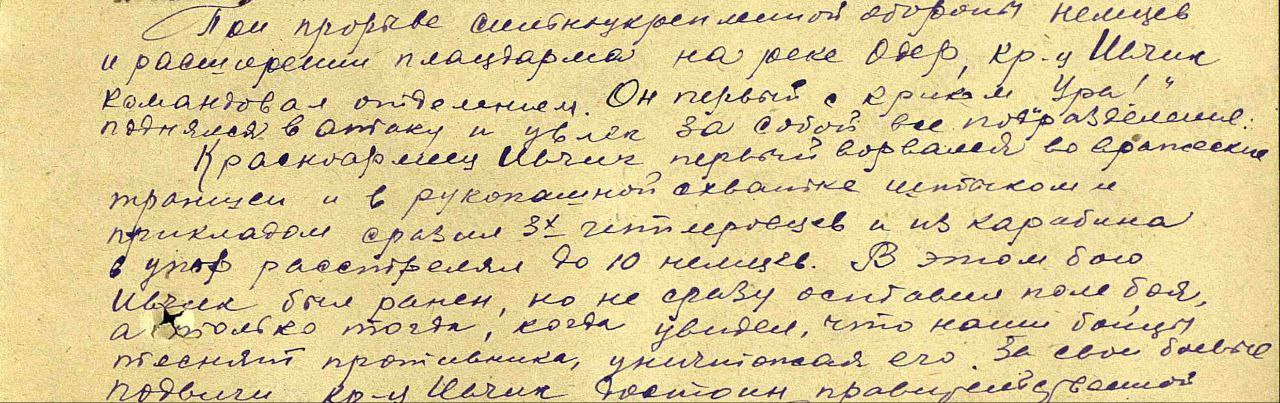 При прорыве сильноукрепленной обороны немцев
и расширении плацдарма на реке Одер, кр-ц Ивчик
командовал отделением. Он первый с криком "Ура!"
поднялся в атаку и увлек за собой все подразделение.
Красноармеец Ивчик первый ворвался во вражеские
траншеи и в рукопашной схватке штыком и
прикладом сразил 3х гитлеровцев и из карабина
в упор расстрелял до 10 немцев. В этом бою
Ивчик был ранен, но не сразу оставил поле боя,
а только тогда, когда увидел, что наши бойцы
теснят противника, уничтожая его. За свои боевые
подвиги кр-ц Ивчик достоин правительственной